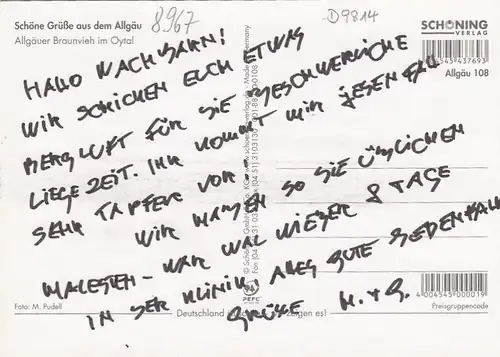 Schöne Grüße aus dem Allgäu
Allgäuer Braunvieh im Oytal
8967
D9814
SCHÖNING
VERLAG
4 004545 437693
Allgäu 108
HALLO NACHBARN!
WIR SCHICKEN EUCH ETWAS
BERGLUFT FÜR DIE BESCHWERLICHE
LIEGEZEIT. IHR KOMMT MIR JEDENFALLS
SEHR TAPFER VOR!
WIR HABEN SO DIE ÜBLICHEN
MALESTEN – WAR MAL WIEDER 8 TAGE
IN DER KLINIK, ALLES GUTE JEDENFALLS
GRÜSSE H. + G.
Foto: M. Pudell
PEFC
Deutschland
zeigen es!
4 004545 000019
Preisgruppencode